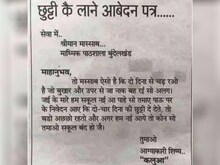 छुट्टी कै लाने आबेदन पत्र......
सेवा में..
श्रीमान मास्साब...
माध्मिक पाठशाला बुंदेलखंड
माहानुभव,
तो मस्साब ऐसो है कै दो दिना से चड़ रओ
है जो बुखार और उपर से जा नाक बह रई सो अलग।
जई के मारे हम स्कूल नई आ पाहे सो तमाए पाऊ पर
के निवेदन आए कि दो-चार दिना की छुट्टी दे देते, तो
बडो अच्छो रहतो और अगर हम नई आये तो कोन सो
तमाओ स्कूल बंद हो जै।
तुमाओ
आग्याकारी शिष्य..
"कलुआ"